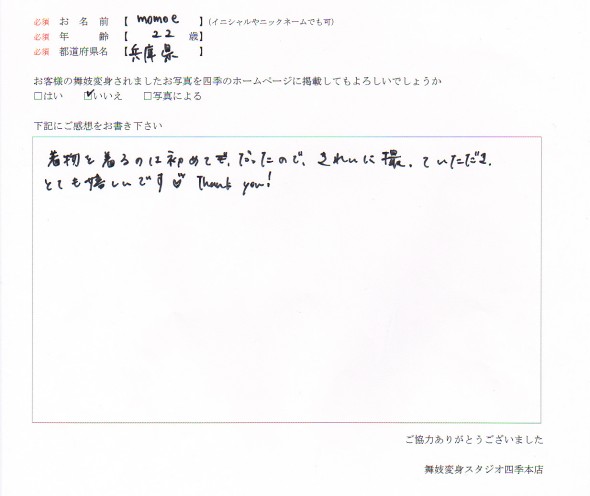 必須 お名前 【 momoe 】(イニシャルやニックネームでも可)
必須 年齢 【 22 歳】
必須 都道府県名 【兵庫県 】
お客様の舞妓変身されましたお写真を四季のホームページに掲載してもよろしいでしょうか
□はい ☑いいえ □写真による
下記にご感想をお書き下さい
着物を着るのは初めてだったので、きれいに撮っていただき、
とても嬉しいです Thank you!
ご協力ありがとうございました
舞妓変身スタジオ四季本店